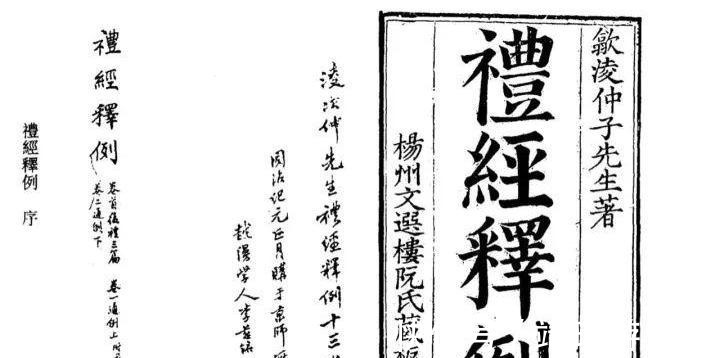 歙淩仲子先生著
禮經釋例
楊州文選樓阮氏藏
淩次仲先生禮經釋例十三
同治紀元正月購于京師
越縵學人李慈銘
禮經釋例
卷首復禮三篇 卷一通例上
卷二通例下
禮經釋例 序